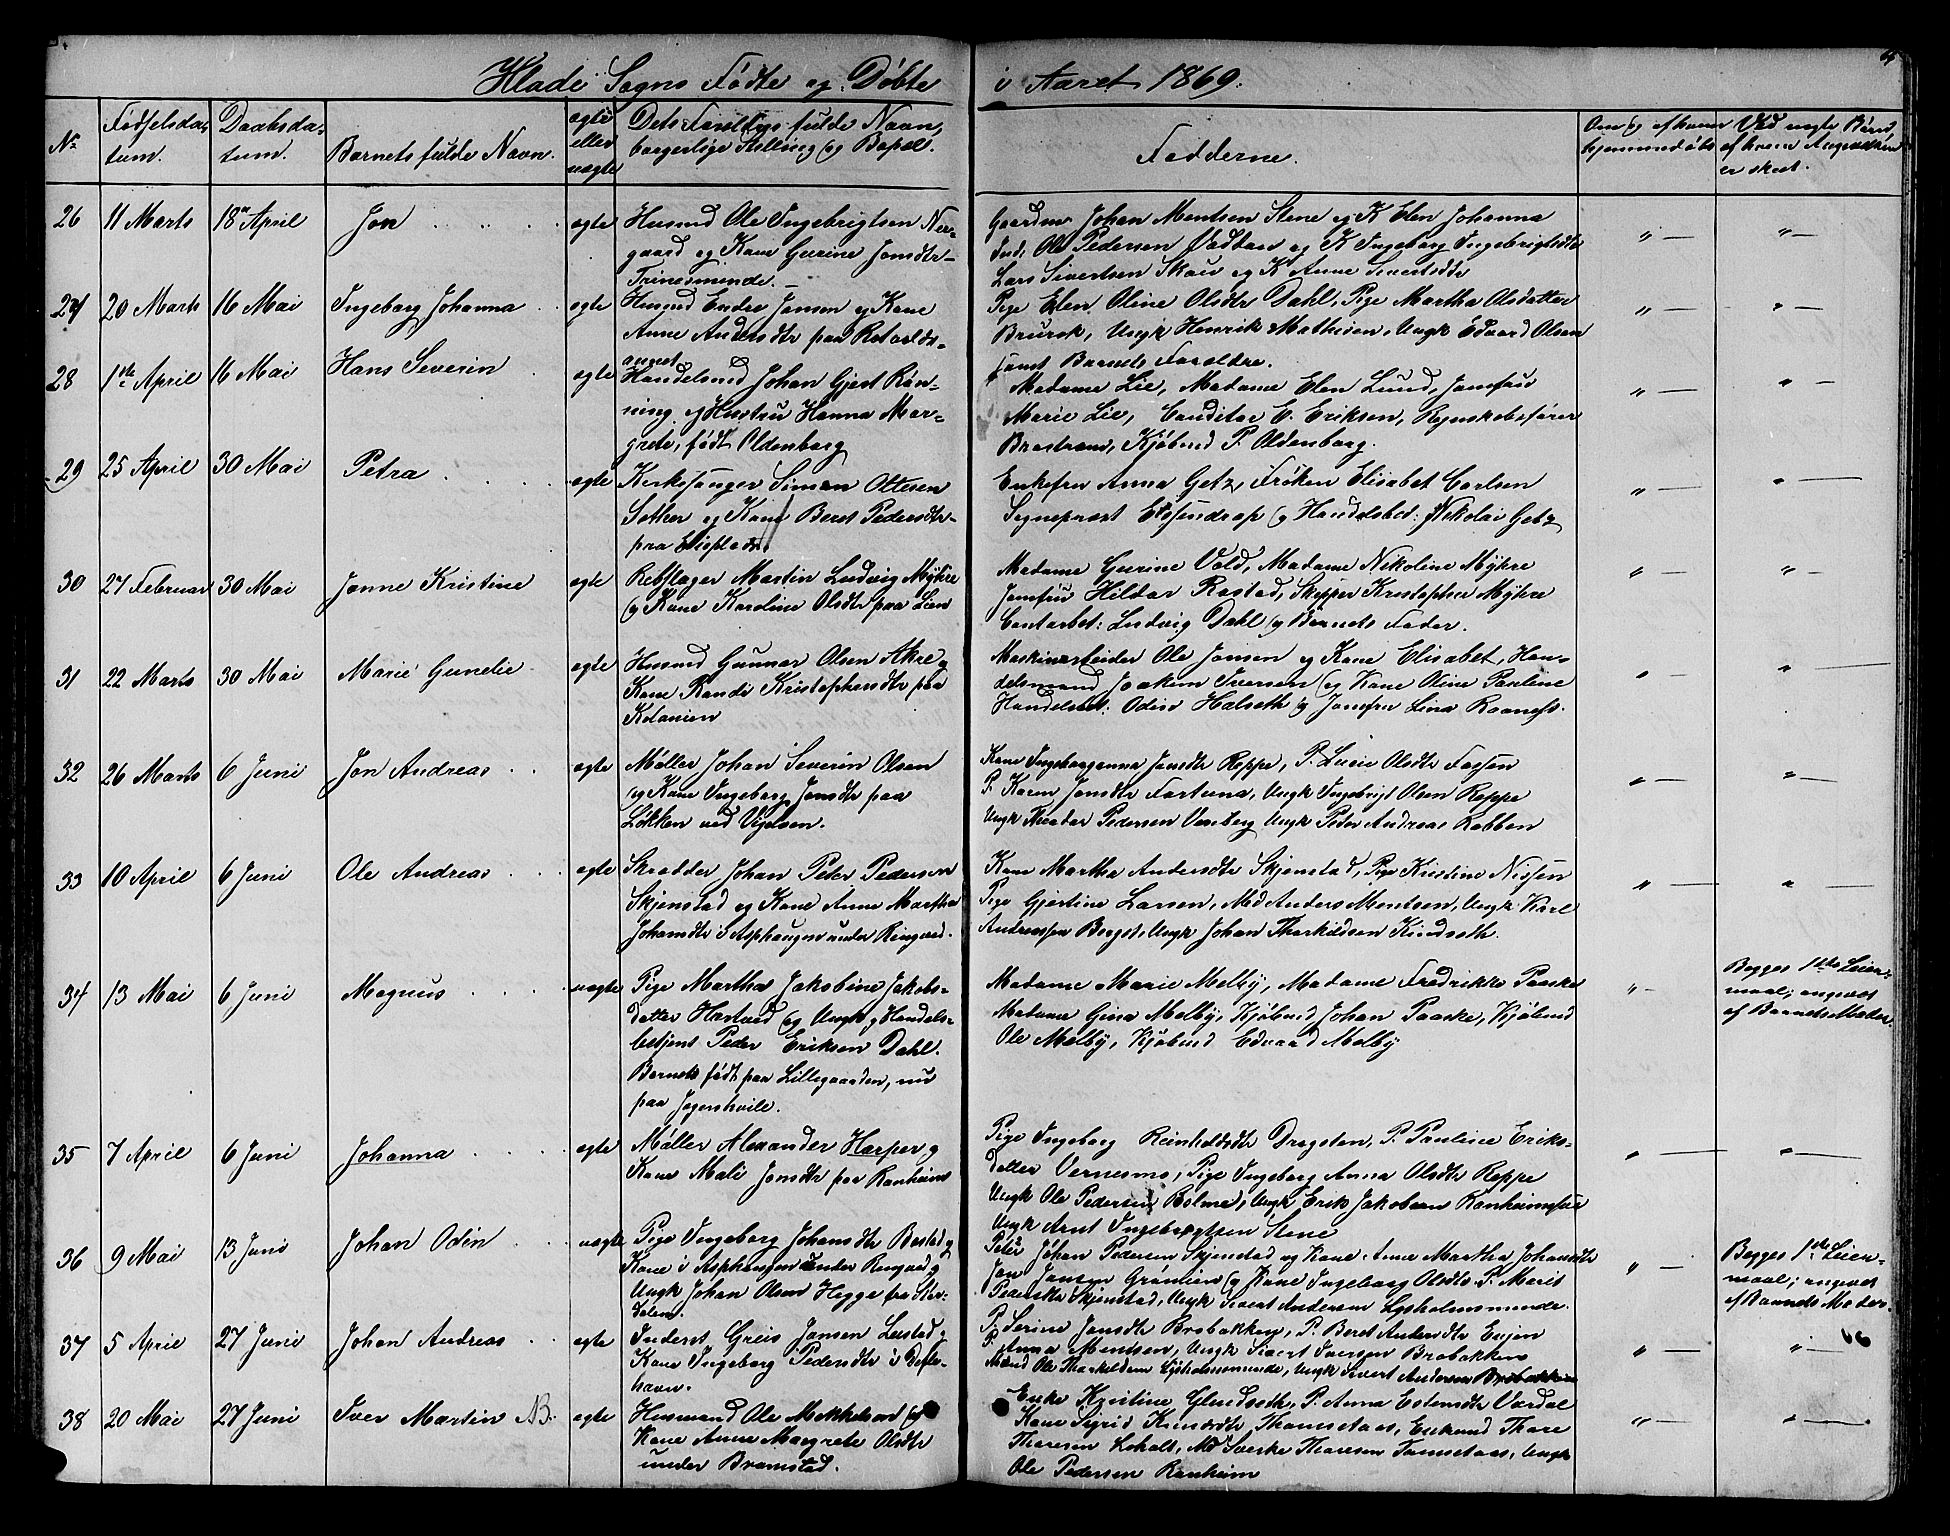 Hlade Sogns Fødte og Døbte i Aaret 1869.
No Fødselsdatum. Daabsdatum. Barnets fulde Navn. ægte eller uægte Dets Forældres fulde Navn, borgerlige Stilling og Bopæl. Fadderne. Om og af hvem hjemmedøbt Ved uægte Børn, af hvem Angivelsen er skeet.
26 11 Marts 18de April Jon ægte Husmd Ole Ingebrigtsen Ner-
gaard og Kone Gurine Jonsdtr
Trinesminde.
Gaardm. Johan Mentsen Stene og K Elen Johanna
Ole Pedersen Vaddan og K Ingeborg Ingebrigtsdtr
Lars Sivertsen Skau og K Anne Sivertsdtr
27 20 Marts 16 Mai Ingeborg Johanna ægte Husmd Endre Jansen og Kone
Anne Andersdtr paa Rotvolds-
Pige Elen Oline Olsdtr Dahl, Pige Martha Olsdatter
Brurok, Ungk Henrik Mathisen, Ungk Edvard Olsen
samt Barnets Forældre.
28 1ste April 16 Mai Hans Severin ægte Handelsmd Johan Gjert Røn-
ning og Hustru Hanna Mar-
grete, født Oldenborg
Madame Lie, Madame Elen Lund, Jomfru
Marie Lie, Conditor E. Eriksen, Regnskabsfører
Brostrøm, Kjøbmd P. Oldenborg.
29 25 April 30 Mai Petra ægte Kirkesanger Simon Ottesen
Sæther og Kone Beret Pedersdtr
Enkefru Anna Getz, Frøken Elisabet Carlsen
Sogneprest Essendrop og Handelsbet: Nikolai Getz
30 27 Februar 30 Mai Janne Kristine ægte Rebslager Martin Ludvig Myhre
og Kone Karoline Olsdtr paa Lien
Madame Gurine Vold, Madame Nikoline Myhre
Jomfru Hilda Rostad, Skipper Kristopher Myhre
Contorbet: Ludvig Dahl og Barnets Fader.
31 22 Marts 30 Mai Marie Gunelie ægte Husmd Gunnar Olsen Aker og
Kone Randi Kristophersdtr paa
Maskinarbeider Ole Jansen og Kone Elisabet, Han-
delsmand Joakim Iversen og Kone Oline Pauline
Handelsbet: Odin Halseth og Jomfru Lina Raaness.
32 26 Marts 6 Juni Jon Andreas ægte Møller Johan Severin Olsen
og Kone Ingeborg Jonsdtr paa
Løkken ved Vigelsen.
Kone Ingeborganna Jonsdtr Reppe, P. Lucie Olsdtr Fossen
P. Karen Jonsdtr Fortuna, Ungk Ingebrigt Olsen Reppe
Ungk Theodor Pedersen Venberg Ungk Peder Andreas Robben
33 10 April 6 Juni Ole Andreas ægte Skrædder Johan Peter Pedersen
Skjenstad og Kone Anne Martha
Johansdtr i Asphaugen under Ringved.
Kone Martha Andersdtr Skjenstad, Pige Kristine Nissen
Pige Gjertine Larsen, Md Anders Mentsen, Ungk Karl
Andreassen Bergst, Ungk Johan Thorkildsen Kindseth.
34 13 Mai 6 Juni Magnus uægte Pige Martha Jakobine Jakobs-
datter Hartved og Ungk og Handels-
betjent Peder Eriksen Dahl.
Barnet født paa Lillegaarden, nu
paa Jegershvile.
Madame Marie Melby, Madame Fredrikke Paaske
Madame Gina Melby, Kjøbmd Johan Paaske, Kjøbmd
Ole Melby, Kjøbmd Edvard Melby
Begges 1ste Leier-
maal; angivet
af Barnets Moder.
35 7 April 6 Juni Johanna ægte Møller Alexander Harper og
Kone Mali Jonsdtr paa Ranheim
Pige Ingeborg Reinholdsdtr Dragsten, P. Pauline Eriks-
datter Vernesmo, Pige Ingeborg Anna Olsdtr Reppe
Ungk Ole Pedersen Bolme, Ungk Erik Jakobsen Ranheimsfæ
Ungk Arnt Ingebrigtsen Stene
36 9 Mai 13 Juni Johan Odin uægte Pige Ingeborg Johansdtr Bostad og
Kone i Asphaugen under Ringved og
Ungk Johan Olsen Hegge fra Stør-
dalen.
Peter Johan Pedersen Skjenstad og Kone Anne Martha Johansdtr
Jon Jonsen Grønlien og Kone Ingeborg Olsdtr P. Marit
Pedersdtr Skjenstad, Ungk Sivert Andersen Lysholmsminde.
Begges 1ste Leier-
maal; angivet
af Barnets Moder.
37 5 April 27 Juni Johan Andreas ægte Inderst Greis Jansen Leistad og
Kone Ingeborg Pedersdtr i Devle-
havn.
P. Serine Jonsdtr Brobakken, P. Beret Andersdtr Engen
P. Anna Mentsen, Ungk Sivert Iversen Brobakken
Mand Ole Thorkeldsen Lysholmsminde, Ungk Sivert Andersen Brobakken
38 20 Mai 27 Juni Iver Martin NB. ægte Husmand Ole Mikkelsen og
Kone Anne Margrete Olsdtr
under Bromstad.
Enke Kristine Glendseth, P. Anna Estensdtr Vordal
Kone Sigrid Knudsdtr Thomsetaas, Enkemd Thore
Thoresen Loholt, Md Sverke Thoresen Tomsetaas, Ungk
Ole Pedersen Ranheim